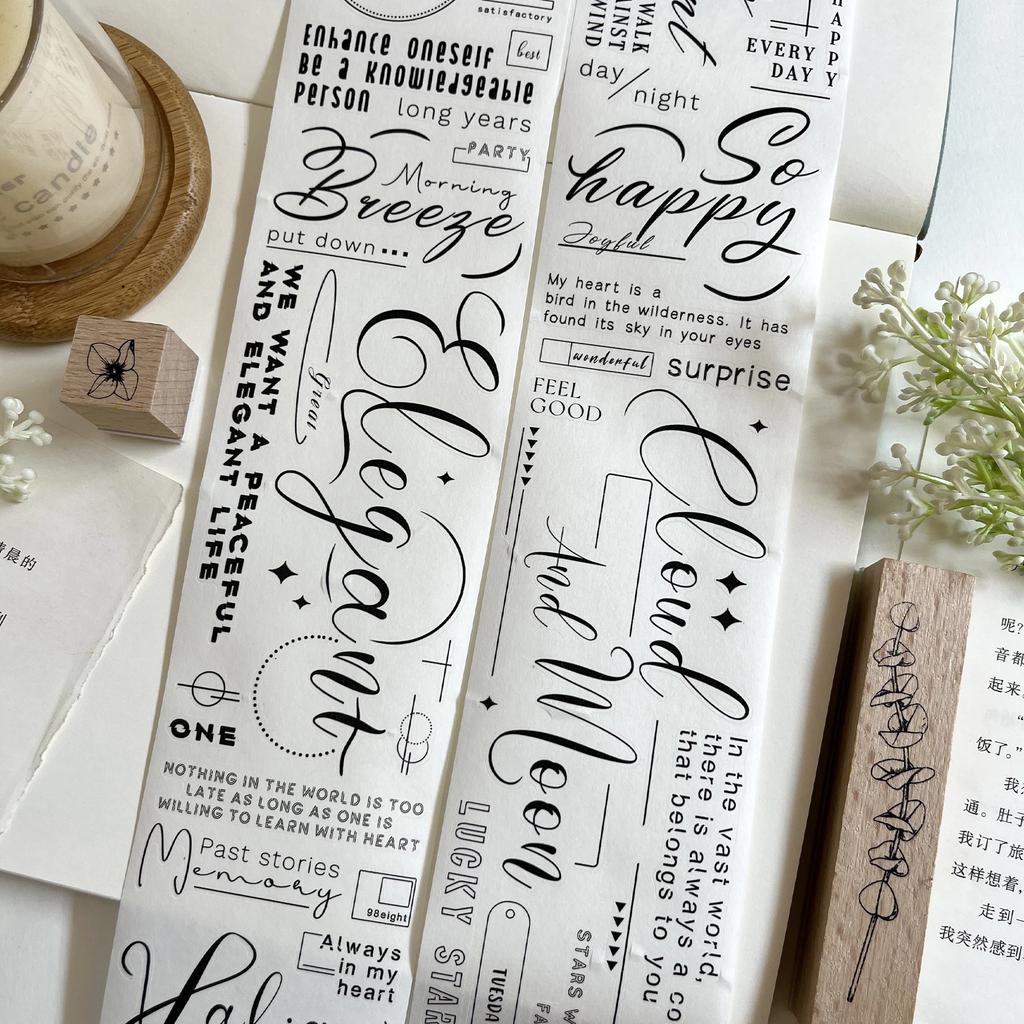 satisfactory
Enhance oneself
Be a Knowledgeable
Person
best
long years
PARTY
Morning
Breeze
put down...
WE WANT A PEACEFUL
AND ELEGANT LIFE
Great
Elegant
ONE
NOTHING IN THE WORLD IS TOO
LATE AS LONG AS ONE IS
WILLING TO LEARN WITH HEART
Past stories
Memory
98eight
Always
in my
heart
WALK
WIND
HAPPY
EVERY
DAY
day/night
So
happy
Joyful
My heart is a
bird in the wilderness. It has
found its sky in your eyes
wonderful
surprise
FEEL
GOOD
Cloud
And Moon
In the vast world,
there is always a co
that belongs to you
LUCKY STAR
TUESDA
STARS W
FA
candle
晨的
呢?
音都
起来
饭了。”
我
通。肚子
我订了旅
这样想着,
走到一
我突然感到